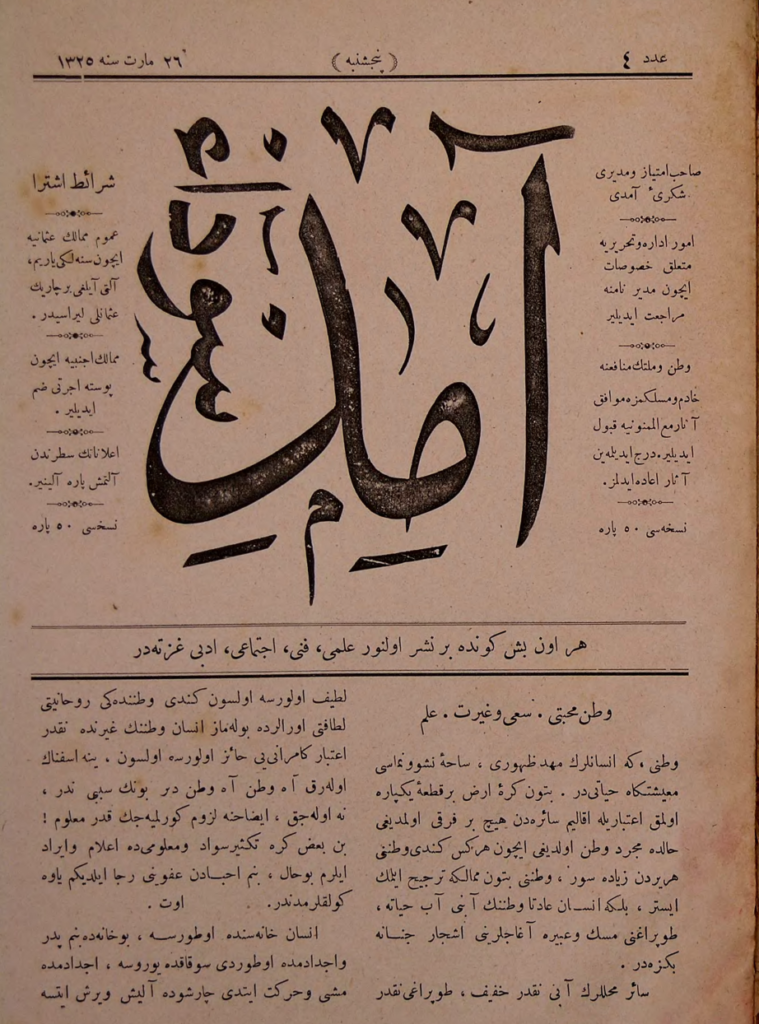 عدد ٤
(پنجشنبه)
٢٦ مارت سنه ١٣٢٥
صاحب امتیاز و مدیری
شکریٔ آمدی
امور اداره و تحریریه
متعلق خصوصات
ایچون مدیر نامنه
مراجعت ایدیلیر
وطن و ملتك منافعنه
خادم و مسلكمزه موافق
آثار مع الممنونیه قبول
ایدیلیر. درج ایدیلمه ین
آثار اعاده ایدلمز.
نسخه سی ٥٠ پاره
شرائط اشترا
عموم ممالك عثمانیه
ایچون سنه لكی یاریم،
آلتی آیلغی بر چاریك
عثمانلی لیراسیدر .
ممالك اجنبیه ایچون
پوسته اجرتی ضم
ایدیلیر .
اعلاناتك سطرندن
آلتمش پاره آلینیر.
نسخسی ٥٠ پاره
هر اون بش كونده بر نشر اولنور علمی، فنی، اجتماعی، ادبی غزته در
وطن محبتی . سعی و غیرت . علم
وطنی ، كه انسانلرك مهد ظهوری ، ساحهٔ نشوونماسی
معیشتكاه حیاتی در . بتون كرهٔ ارض بر قطعهٔ یكپاره
اولمق اعتباریله اقالیم سائره دن هیچ بر فرقی اولمدیغی
حالده مجرد وطن اولدیغی ایچون هركس كندی وطننی
هر یردن زیاده سور ، وطننی بتون ممالكه ترجیح ایتمك
ایستر ، بلكه انسان عادتا وطننك آبنی آب حیاته ،
طوپراغنی مسك و عبیره آغاجلرینی اشجار جنانه
بكزه در .
سائر محللرك آبی نقدر خفیف ، طوپراغی نقدر
لطیف اولورسه اولسون كندی وطننده كی روحانیتی
لطافتی اورالرده بوله ماز انسان وطننك غیرنده نقدر
اعتبار كامرانی یی حائز اولورسه اولسون ، ینه اسفناك
اوله رق آه وطن آه وطن دیر بونك سببی ندر ،
نه اوله جق ، ایضاحنه لزوم كورلمیه جك قدر معلوم !
بن بعض كره تكثیر سواد و معلومی ده اعلام و ایراد
ایلرم بو حال ، بنم احبادن عفوینی رجا ایلدیكم یاوه
كولقلرمدندر. اوت .
انسان خانه سنده اوطورسه ، بو خانه ده بنم پدر
و اجدادمده اوطوردی سوقاقده یوروسه ، اجدادمده
مشی و حركت ایتدی چارشوده آلیش ویرش ایتسه